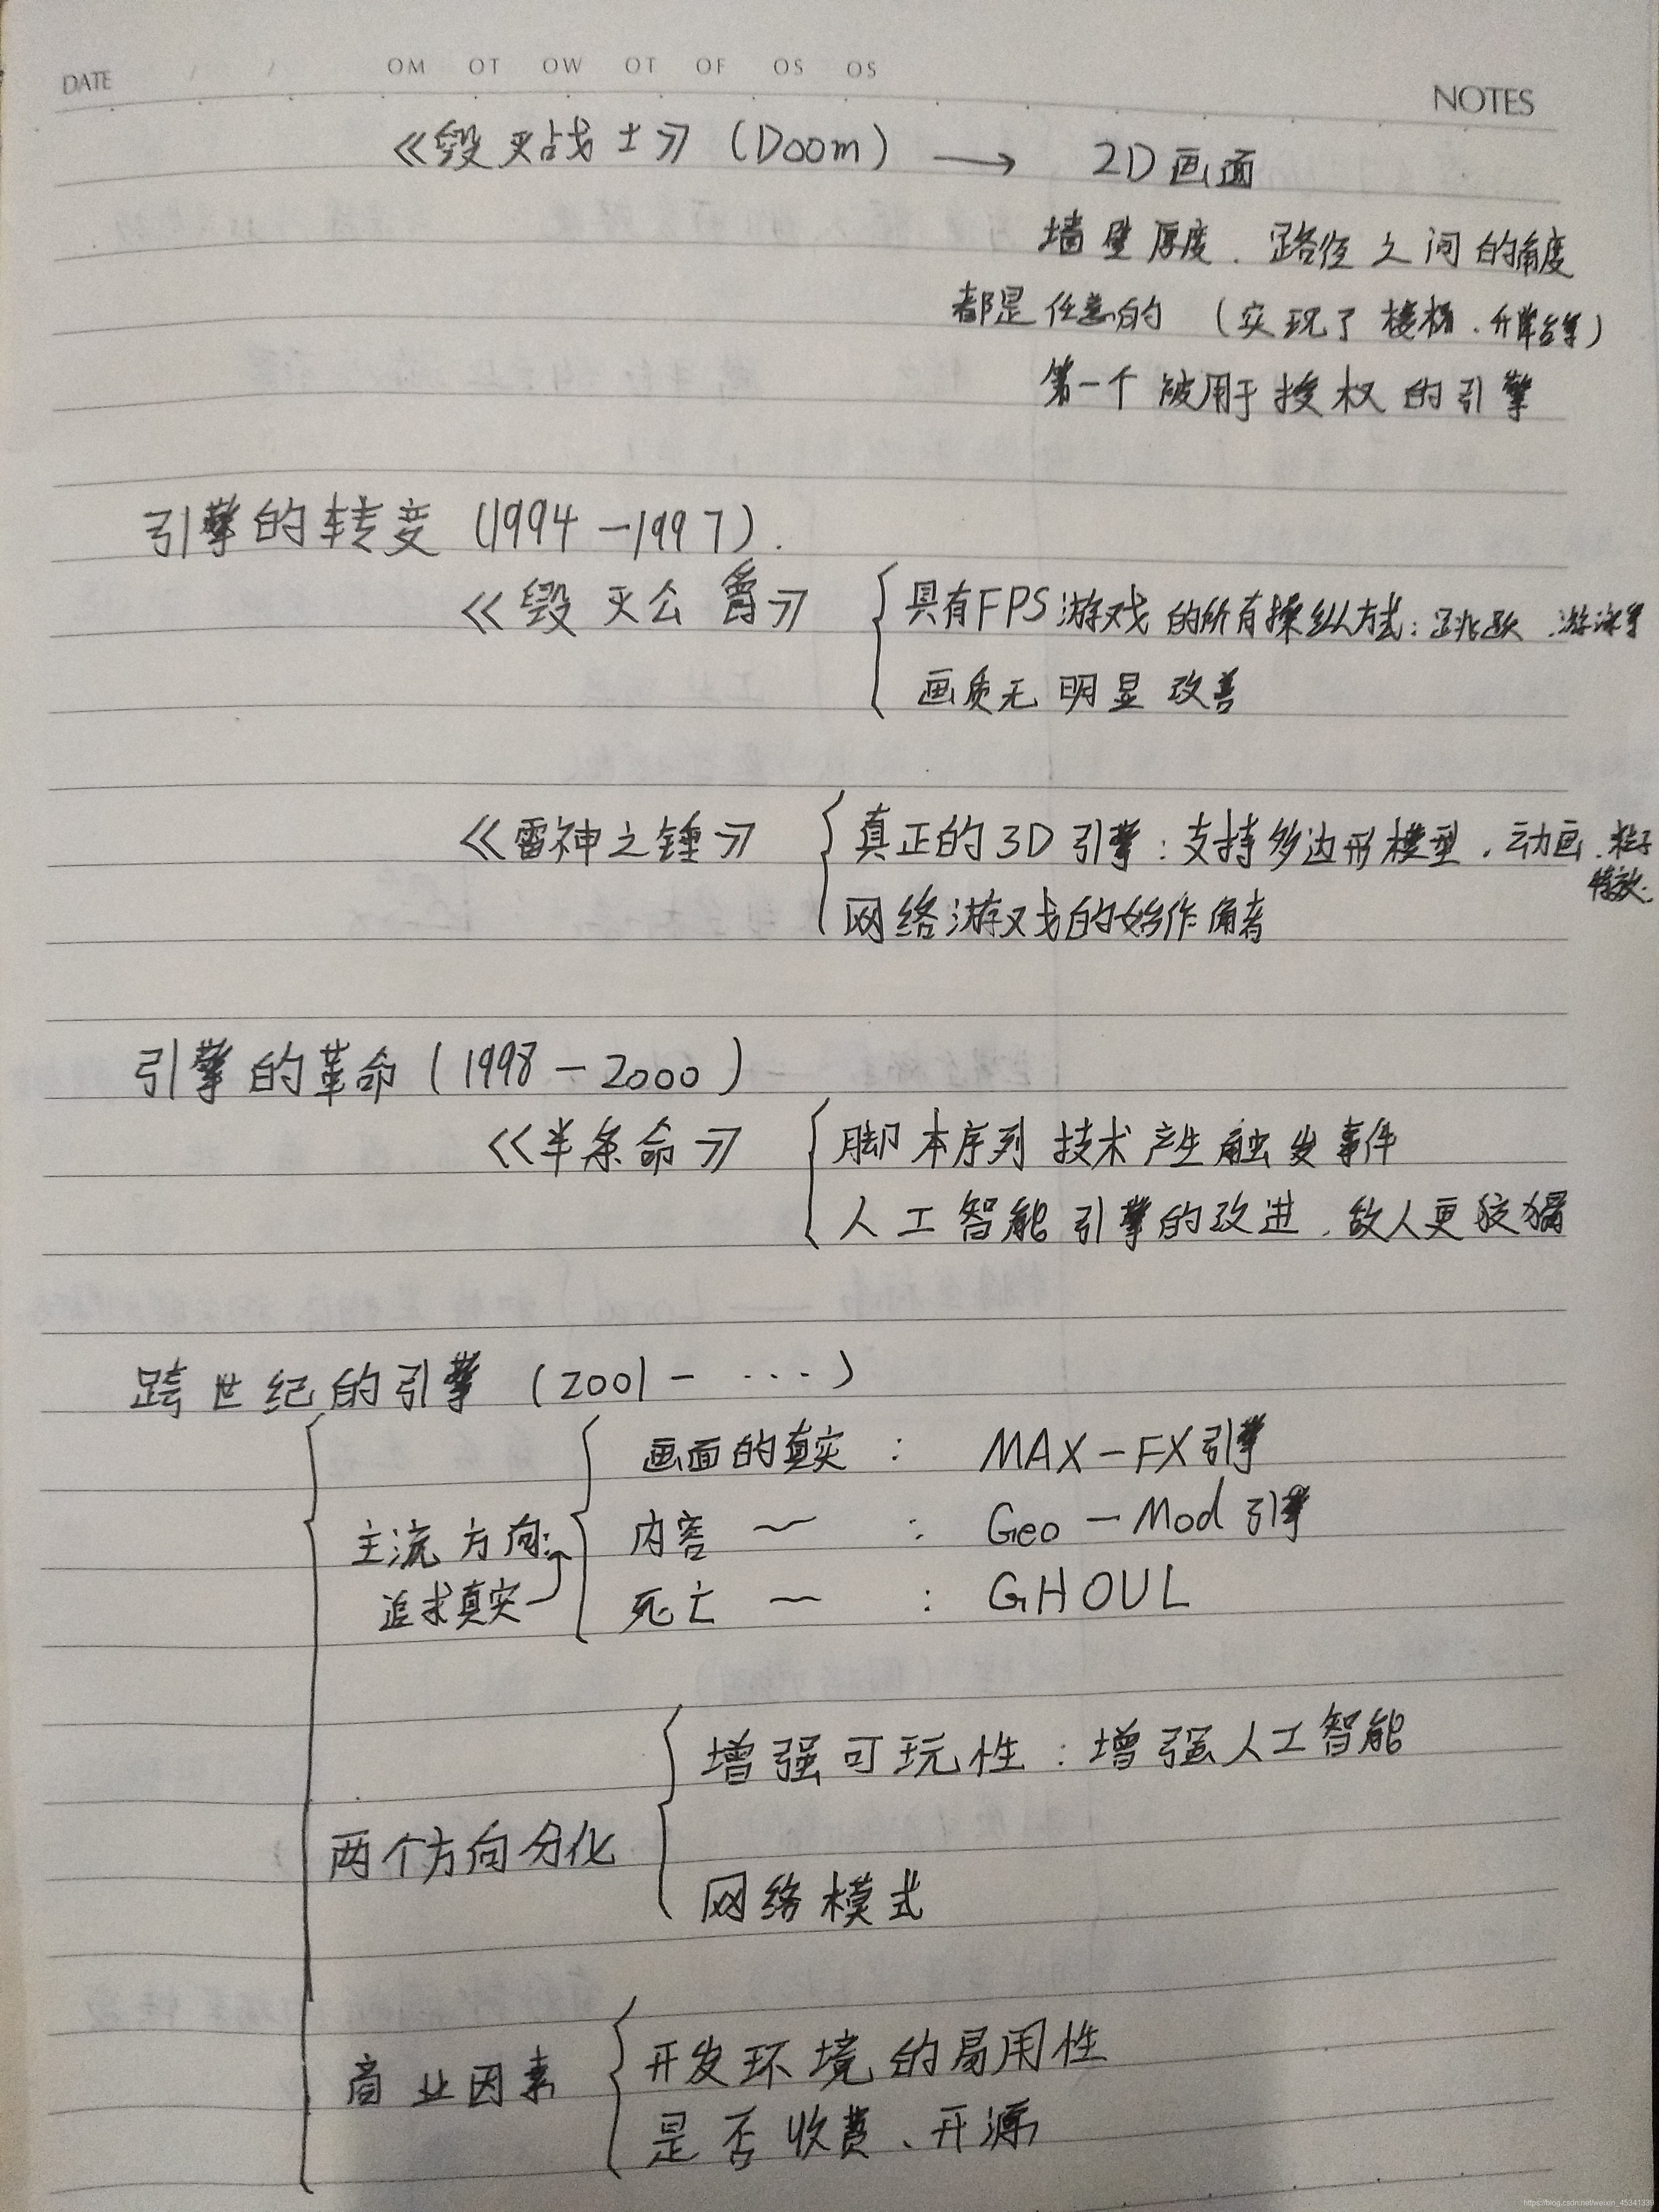 DATE / / OM OT OW OT OF OS OS
NOTES
《毁灭战士》(Doom) → 2D画面
墙壁厚度、路径之间的角度
都是任意的 (实现了楼梯、升降台等)
第一个被用于授权的引擎
引擎的转变 (1994-1997).
《毁灭公爵》 具有FPS游戏的所有操纵方式:跳跃、游泳等
画质无明显改善
《雷神之锤》 真正的3D引擎:支持多边形模型、动画、粒子
特效.
网络游戏的始作俑者
引擎的革命 (1998-2000)
《半条命》 脚本序列技术产生触发事件
人工智能引擎的改进,敌人更狡猾
跨世纪的引擎 (2001-····)
画面的真实 : MAX-FX引擎
主流方向: 内容 ~ : Geo-Mod引擎
追求真实 死亡 ~ : GHOUL
增强可玩性:增强人工智能
两个方向分化
网络模式
商业因素 开发环境的易用性
是否收费、开源
https://blog.csdn.net/weixin_45341339